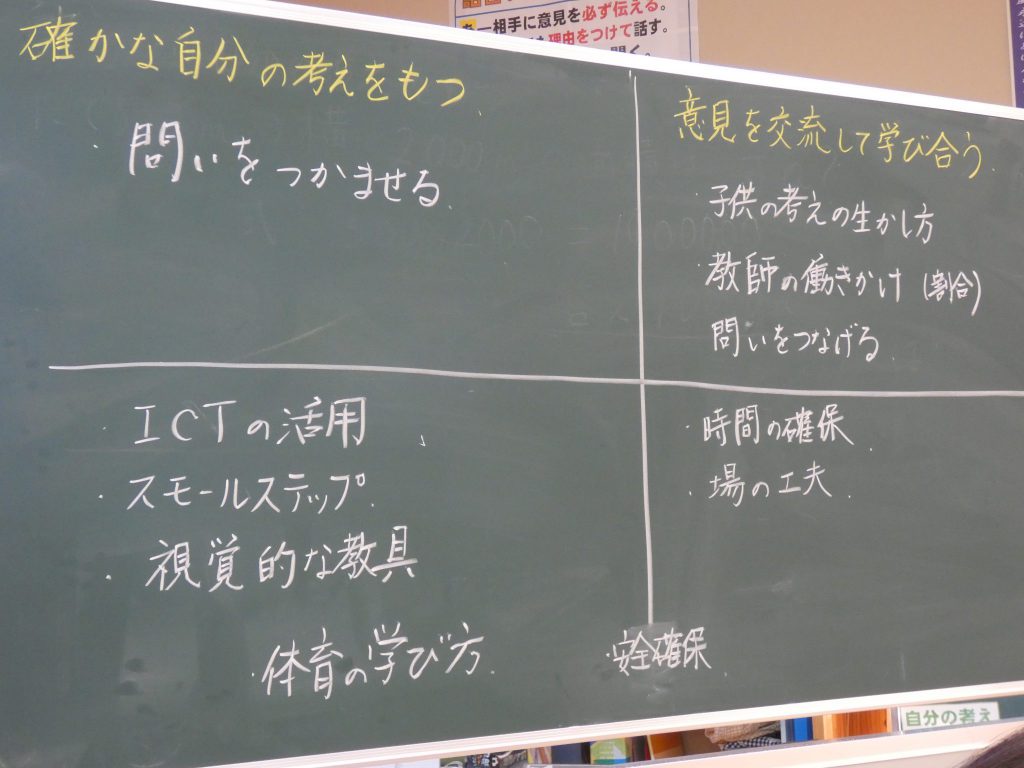 相手に意見を必ず伝える。
理由をつけて話す。
確かな自分の考えをもつ
・問いをつかませる
意見を交流して学び合う
・子供の考えの生かし方
・教師の働きかけ(割合)
問いをつなげる
・ICTの活用
・スモールステップ
・視覚的な教具
・体育の学び方
・時間の確保
・場の工夫
・安全確保
自分の考え